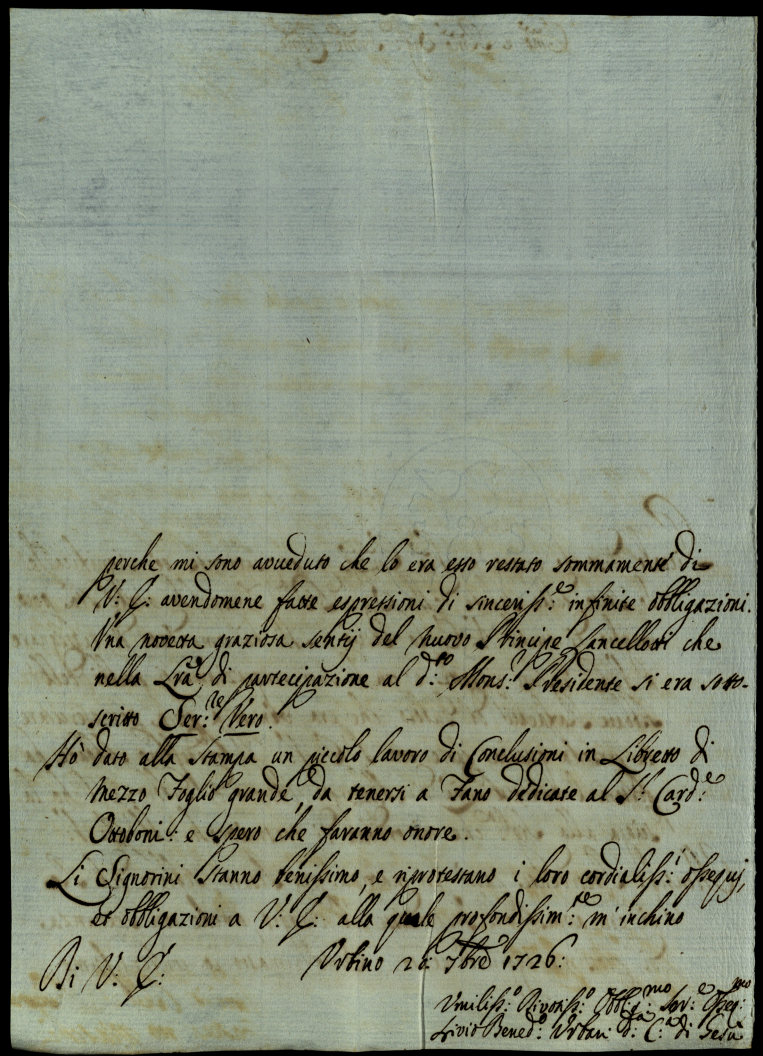 perche mi sono avveduto che lo era esso restato sommamente di
V: E: avendomene fatte espressioni di sinceriss:e infinite obbligazioni.
Una novetta graziosa sentij del nuovo Principe Lancellotti che
nella Lra di partecipazione al d:to Mons:r Presidente si era sotto-
scritto Ser:re Vero.
Hò dato alla stampa un piccolo lavoro di Conclusioni in Libretto di
mezzo Foglio grande, da tenersi a Fano dedicate al S:r Card:e
Ottoboni: e spero che faranno onore.
Li Signorini stanno benissimo, e riprotestano i loro cordialiss:i ossequj,
et obbligazioni a V: E: alla quale profondissim:te m'inchino
Di V: E: Urbino 20: 7bre 1726:
Umiliss:o Divotiss:o Obblig:mo Ser:e Osseq:mo
Livio Bened:o Urbani d:a C:a di Gesù